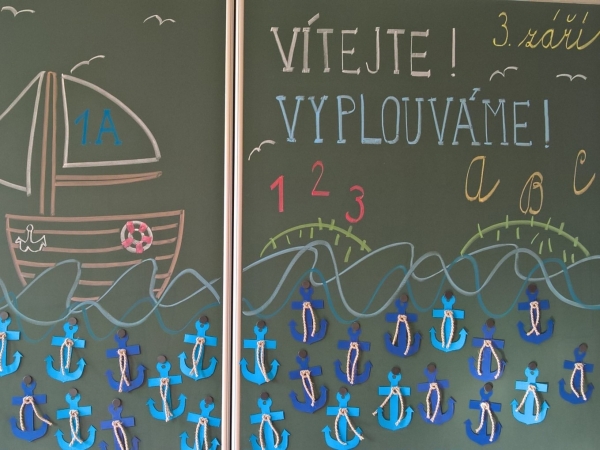 3. září
VÍTEJTE!
VYPLOUVÁME!
1.A
1 2 3
a B C